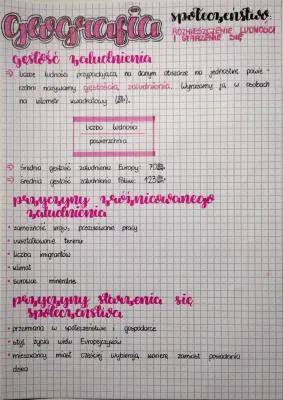 Geografia
społeczeństwo
ROZMIESZCZENIE LUDNOŚCI
I STARZENIE SIĘ
gęstość zaludnienia
→ liczbę ludności przypadającą na danym obszarze na jednostkę powie-
rzchni nazywamy gęstością zaludnienia. Wyrażamy ją w osobach
na kilometr kwadratowy
liczba ludności
powierzchnia
→ średnia gęstość zaludnienia Europy: 70
→ średnia gęstość zaludnienia Polski: 123
przyczyny zróżnicowanego
zaludnienia
• zamożność kraju, poszukiwanie pracy
• ukształtowanie terenu
• liczba imigrantów
• klimat
• surowce mineralne
przyczyny starzenia się
społeczeństwa
• przemiana w społeczeństwie i gospodarce
• styl życia wielu Europejczyków
• mieszkańcy miast częściej wybierają karierę zamiast posiadania
dzieci